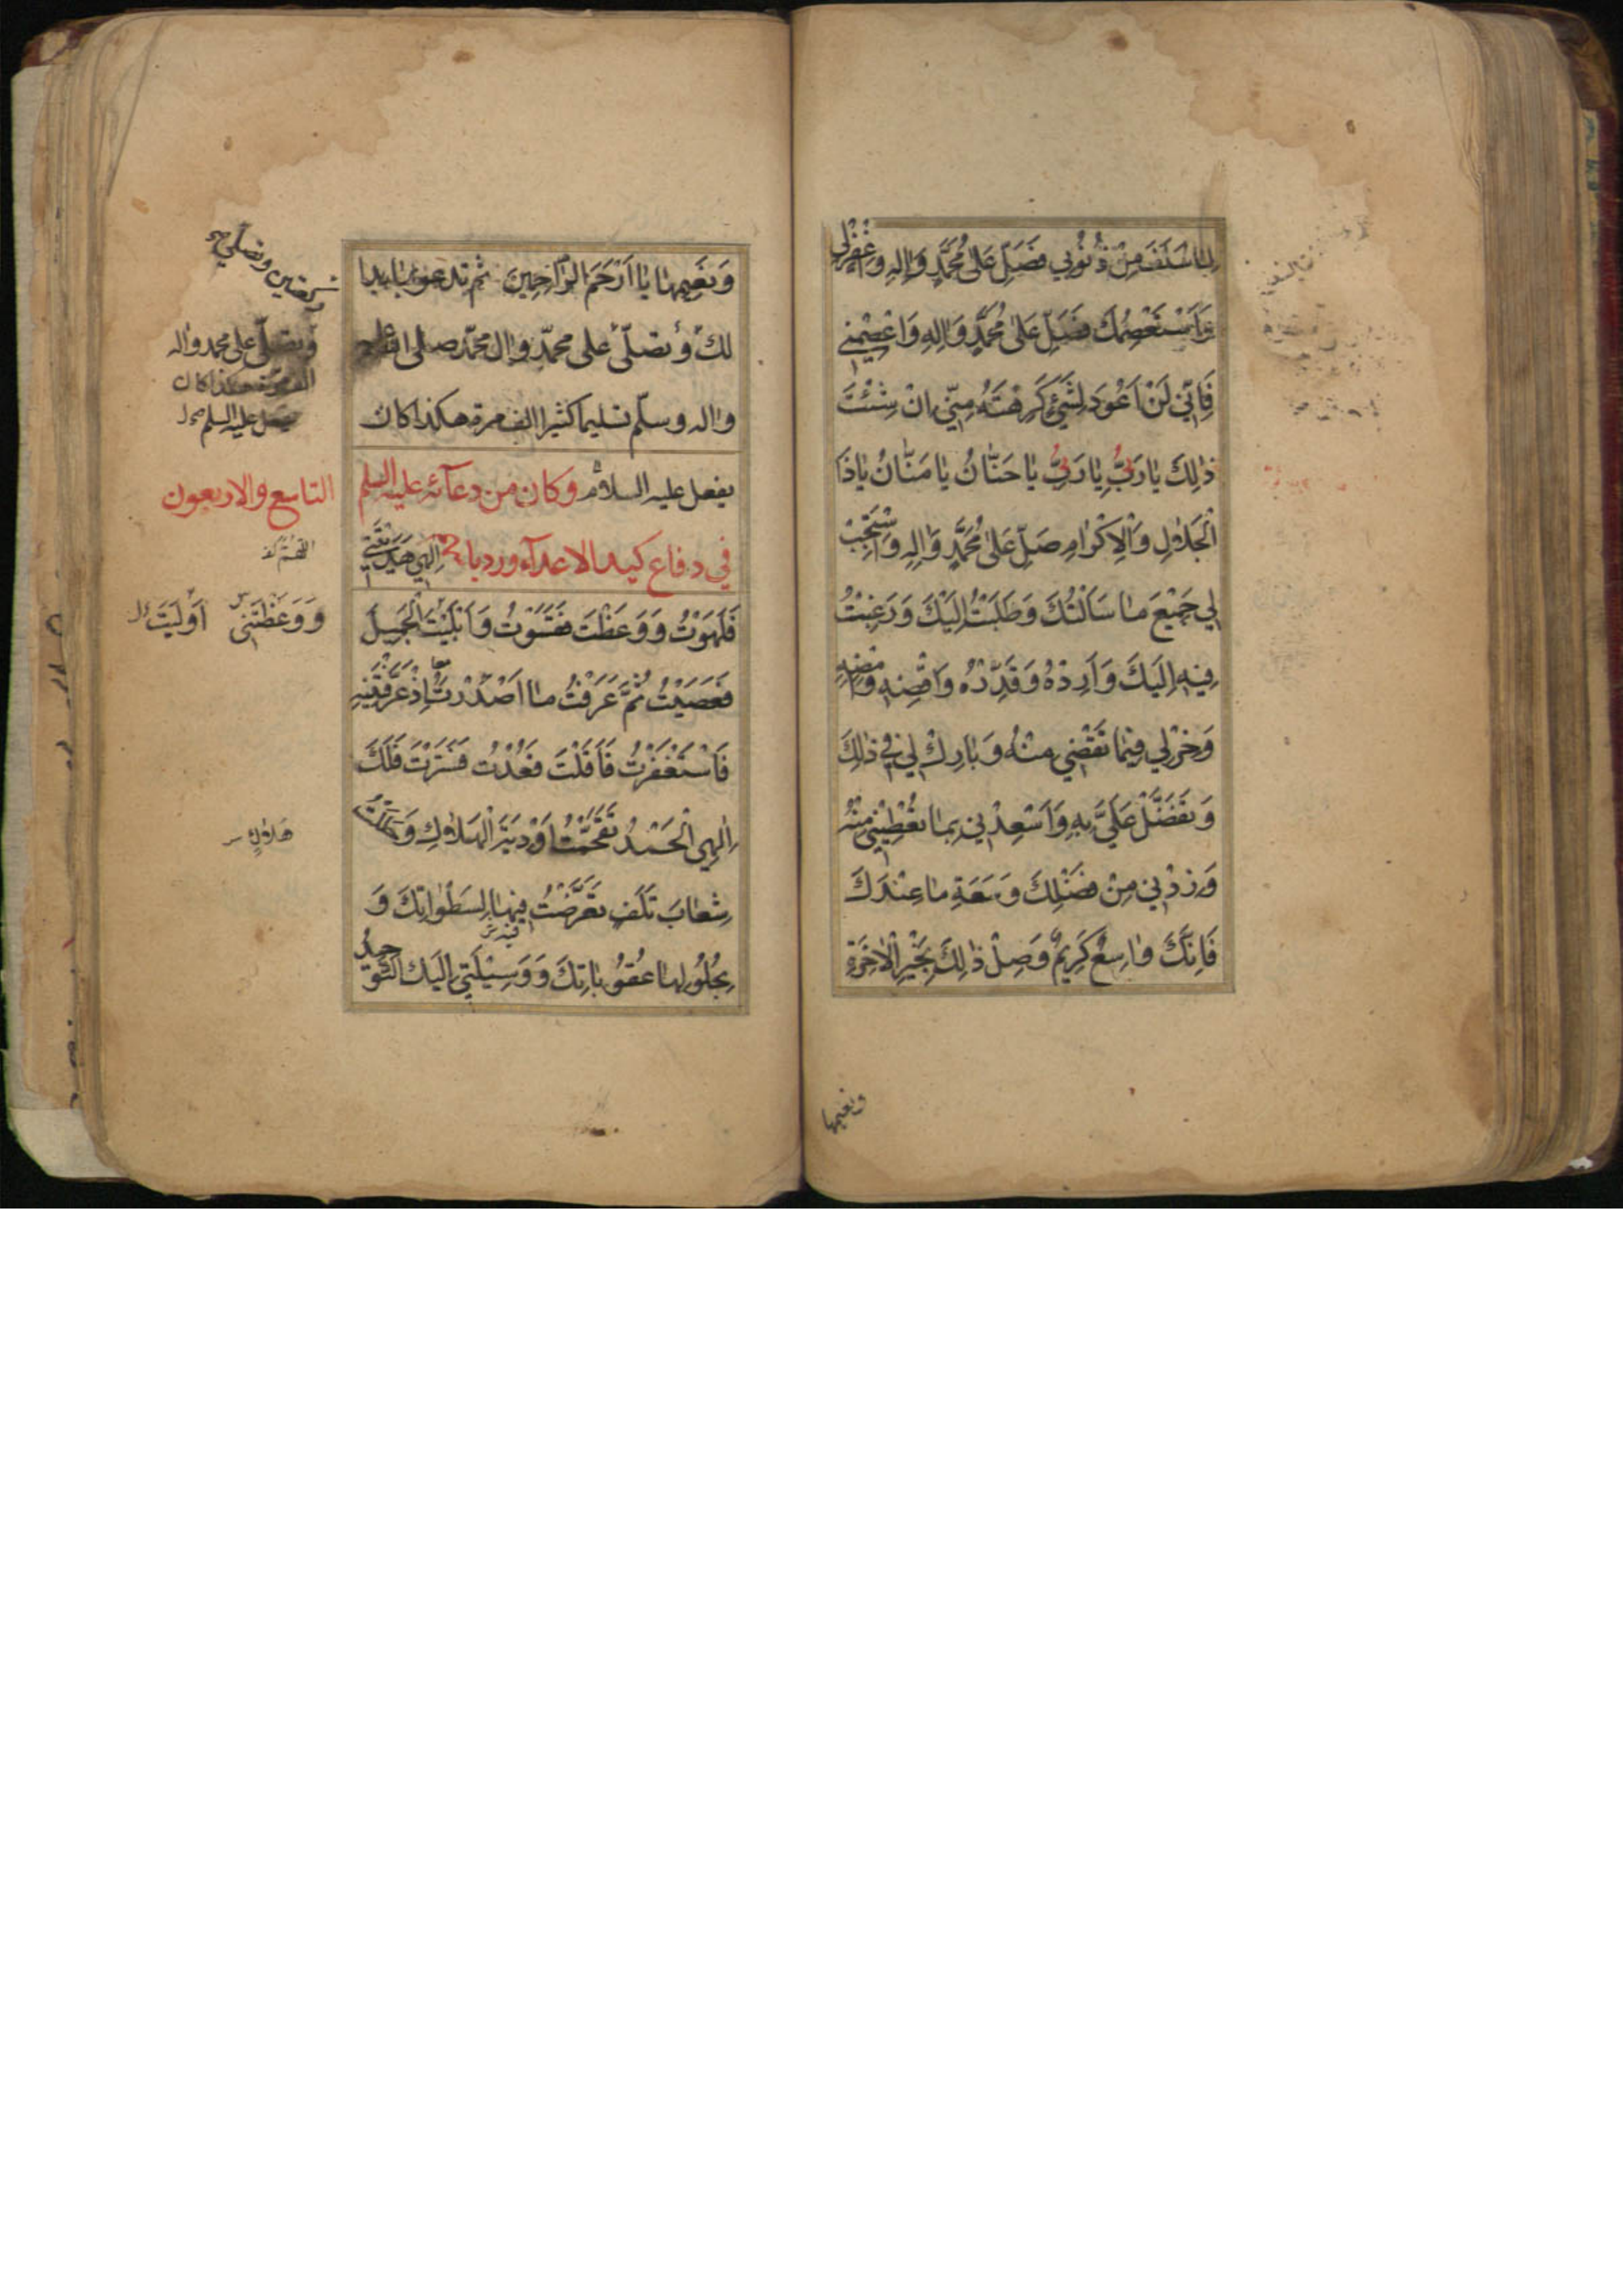 لِمَا سَلَفَ مِنْ ذُنُوبِي فَصَلِّ عَلىٰ مُحَمَّدٍ وَاٰلِهِ وَاغْفِرْلِي
وَاَسْتَعْصِمُكَ فَصَلِّ عَلىٰ مُحَمَّدٍ وَاٰلِهِ وَاعْصِمْنِي
فَاِنِّي لَنْ اَعُودَ لِشَيْءٍ كَرِهْتَهُ مِنِّي اِنْ شِئْتَ
ذٰلِكَ يَا رَبِّ يَا رَبِّ يَا حَنَّانُ يَا مَنَّانُ يَا ذَا
الْجَلَالِ وَالْاِكْرَامِ صَلِّ عَلىٰ مُحَمَّدٍ وَاٰلِهِ وَاسْتَجِبْ
لِي جَمِيعَ مَا سَاَلْتُكَ وَطَلَبْتُ اِلَيْكَ وَرَغِبْتُ
فِيهِ اِلَيْكَ وَاَرِدْهُ وَقَدِّرْهُ وَاقْضِهِ وَامْضِهِ
وَخِرْلِي فِيمَا تَقْضِي مِنْهُ وَبَارِكْ لِي فِي ذٰلِكَ
وَتَفَضَّلْ عَلَيَّ بِهِ وَاَسْعِدْنِي بِمَا تُعْطِينِي مِنْهُ
وَزِدْنِي مِنْ فَضْلِكَ وَسَعَةِ مَا عِنْدَكَ
فَاِنَّكَ وَاسِعٌ كَرِيمٌ وَصِلْ ذٰلِكَ بِخَيْرِ الْاٰخِرَةِ
ونعيمها
وَنَعِيمِهَا يَا اَرْحَمَ الرَّاحِمِينَ ثم تدعو بما بدا
لك وتصلّي على محمّد وال محمّد صلى الله عليه
واله وسلّم تسليما كثيرا الف مرة هكذا كان
يفعل عليه السلام وكان من دعآئه عليه السلم
في دفاع كيد الاعدآء ورد باسهم اِلٰهِي هَدَيْتَنِي
فَلَهَوْتُ وَوَعَظْتَ فَقَسَوْتُ وَاَبْلَيْتَ الْجَمِيلَ
فَعَصَيْتُ ثُمَّ عَرَفْتُ مَا اَصْدَرْتَ اِذْ عَرَّفْتَنِيهِ
فَاسْتَغْفَرْتُ فَاَقَلْتَ فَعُدْتُ فَسَتَرْتَ فَلَكَ
اِلٰهِي الْحَمْدُ تَقَحَّمْتُ اَوْدِيَةَ الْهَلَاكِ وَحَلَلْتُ
شِعَابَ تَلَفٍ تَعَرَّضْتُ فِيهَا لِسَطَوَاتِكَ وَ
بِحُلُولِهَا عُقُوبَاتِكَ وَوَسِيلَتِي اِلَيْكَ التَّوْحِيدُ
ركعتين وتصلّي
وتصلّي على محمد واله
الف مرة هكذا كان
يفعل عليه السلم
التاسع والاربعون
اللهم
وَوَعَظْتَنِي اَوْلَيْتَ
هَلَاكٍ